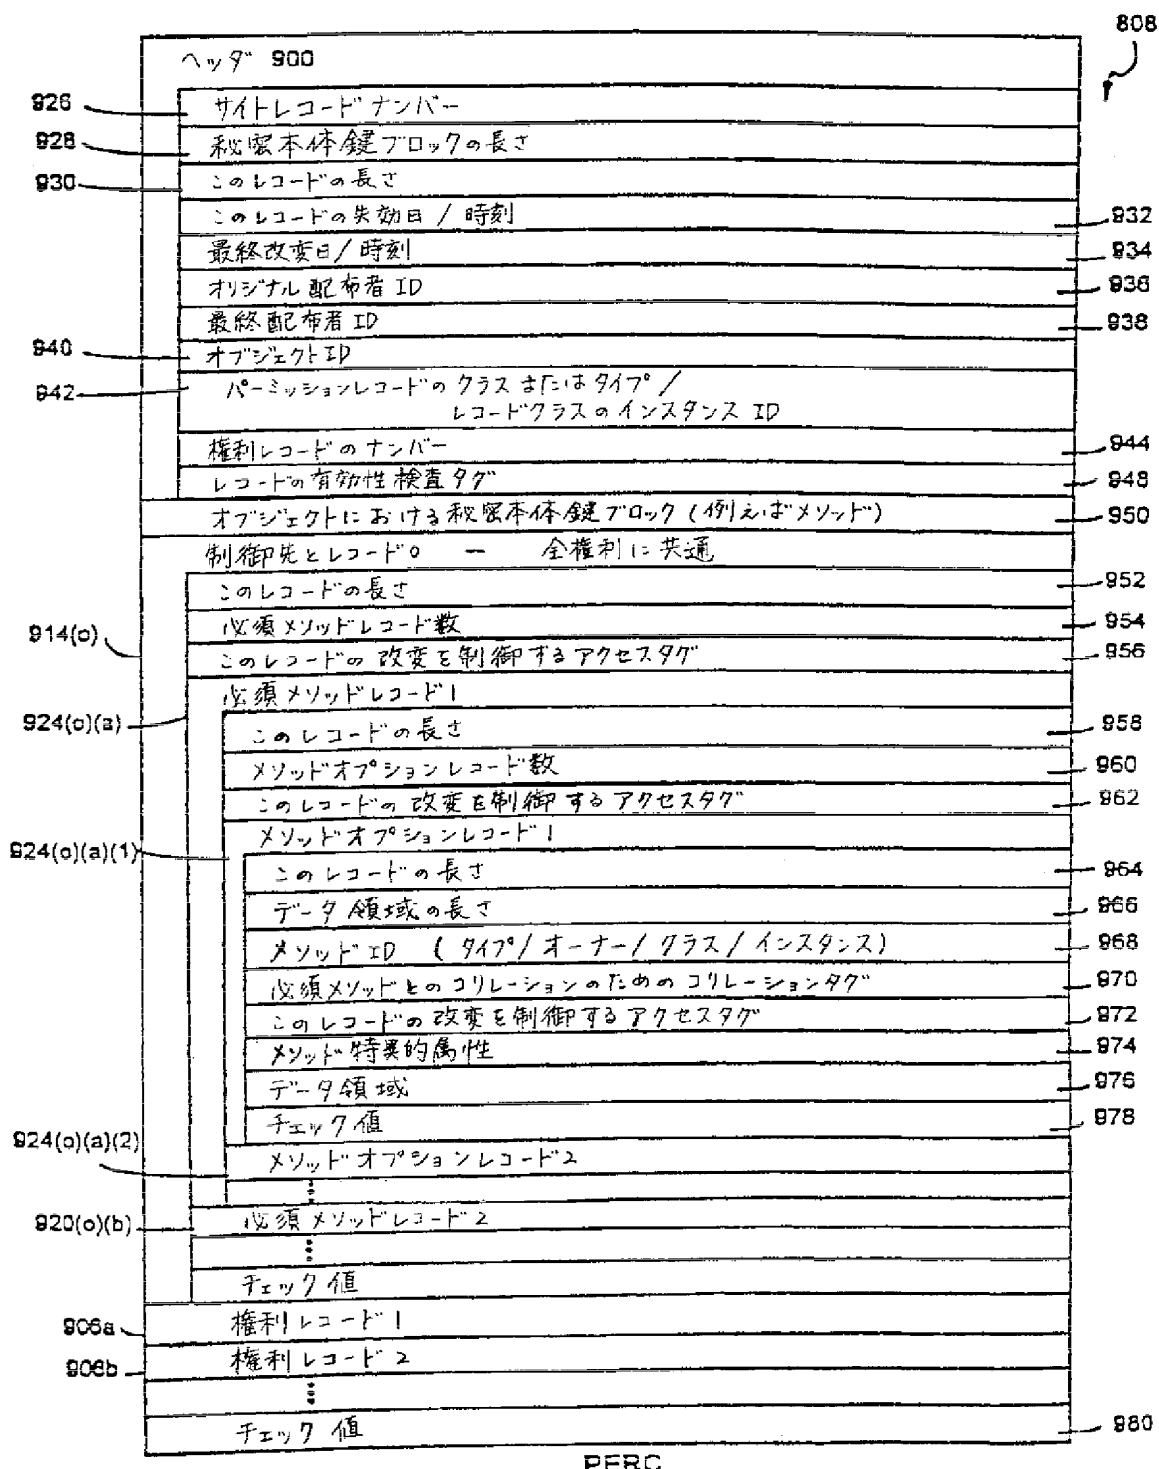 808
ヘッダ 900
926 サイトレコードナンバー
928 秘密本体鍵ブロックの長さ
930 このレコードの長さ
このレコードの失効日/時刻 932
最終改変日/時刻 934
オリジナル配布者ID 936
最終配布者ID 938
940 オブジェクトID
942 パーミッションレコードのクラスまたはタイプ/
レコードクラスのインスタンスID
権利レコードのナンバー 944
レコードの有効性検査タグ 948
オブジェクトにおける秘密本体鍵ブロック(例えばメソッド) 950
制御先とレコード0 ー 全権利に共通
このレコードの長さ 952
914(o) 必須メソッドレコード数 954
このレコードの改変を制御するアクセスタグ 956
924(o)(a) 必須メソッドレコード1
このレコードの長さ 958
メソッドオプションレコード数 960
このレコードの改変を制御するアクセスタグ 962
924(o)(a)(1) メソッドオプションレコード1
このレコードの長さ 964
データ領域の長さ 966
メソッドID (タイプ/オーナー/クラス/インスタンス) 968
必須メソッドとのコリレーションのためのコリレーションタグ 970
このレコードの改変を制御するアクセスタグ 972
メソッド特異的属性 974
データ領域 976
チェック値 978
924(o)(a)(2) メソッドオプションレコード2
920(o)(b) 必須メソッドレコード2
チェック値
906a 権利レコード1
906b 権利レコード2
チェック値 980
PERC